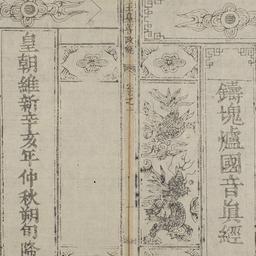 鑄塊爐國音眞經
皇朝維新辛亥年仲秋朔旬降